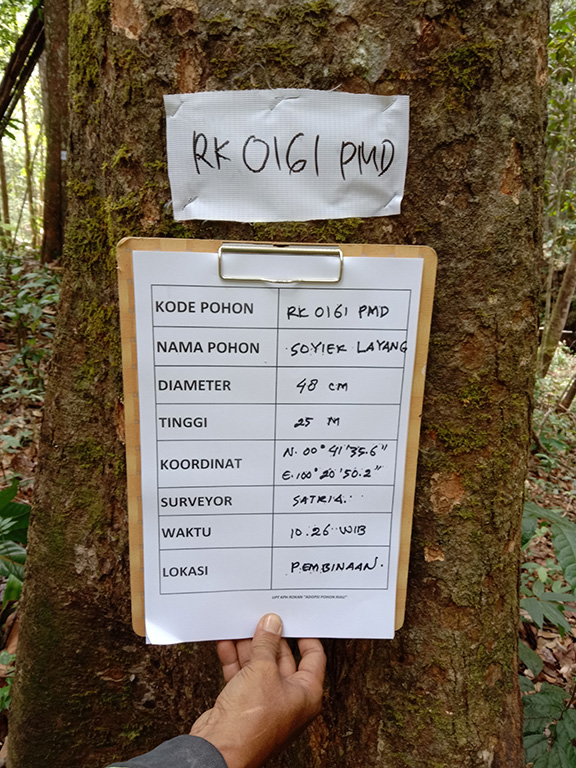 RK 0161 PMD
KODE POHON RK 0161 PMD
NAMA POHON SOYIEK LAYANG
DIAMETER 48 CM
TINGGI 25 M
KOORDINAT N. 00° 41' 35.6"
E. 100° 20' 50.2"
SURVEYOR SATRIA.
WAKTU 10.26 WIB
LOKASI PEMBINAAN.
UPT KPH ROKAN "ADOPSI POHON RIAU"